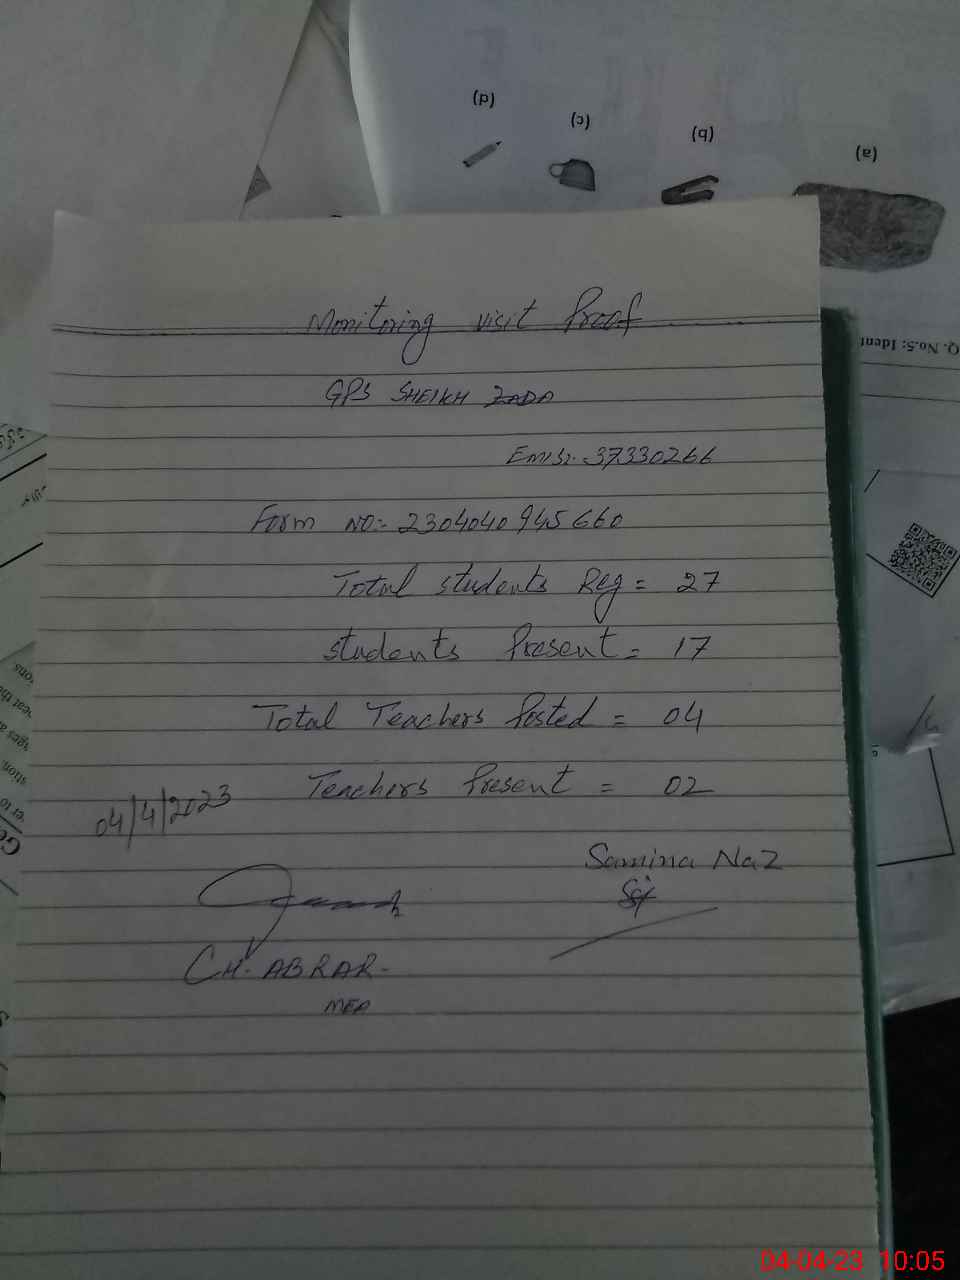 (d)
(c)
(b)
(a)
Q. No.5: Ident
Monitoring visit Proof
GPS SHEIKH ZADA
Emis:- 37330266
Form NO:- 2304040945660
Total students Reg = 27
students Present = 17
Total Teachers Posted = 04
Teachers Present = 02
04/4/2023
Samina Naz
CH. ABRAR-
MEA
04-04-23 10:05